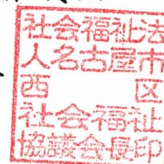 社会福祉法
人名古屋市
西区
社会福祉
協議会長印